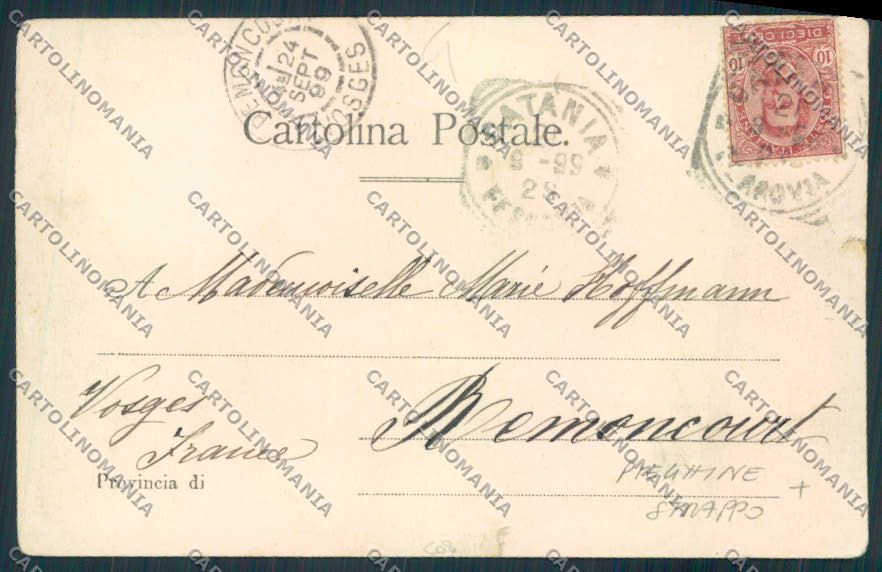 REMONCOURT
24
SEPT
99
VOSGES
DIECI
10 10
Cartolina Postale.
CATANIA
9 -99
FERROVIA
A Mademoiselle Marie Hoffmann
Vosges
France
Remoncourt
Provincia di
PIEGHINE +
STRAPPO
CARTOLINOMANIA